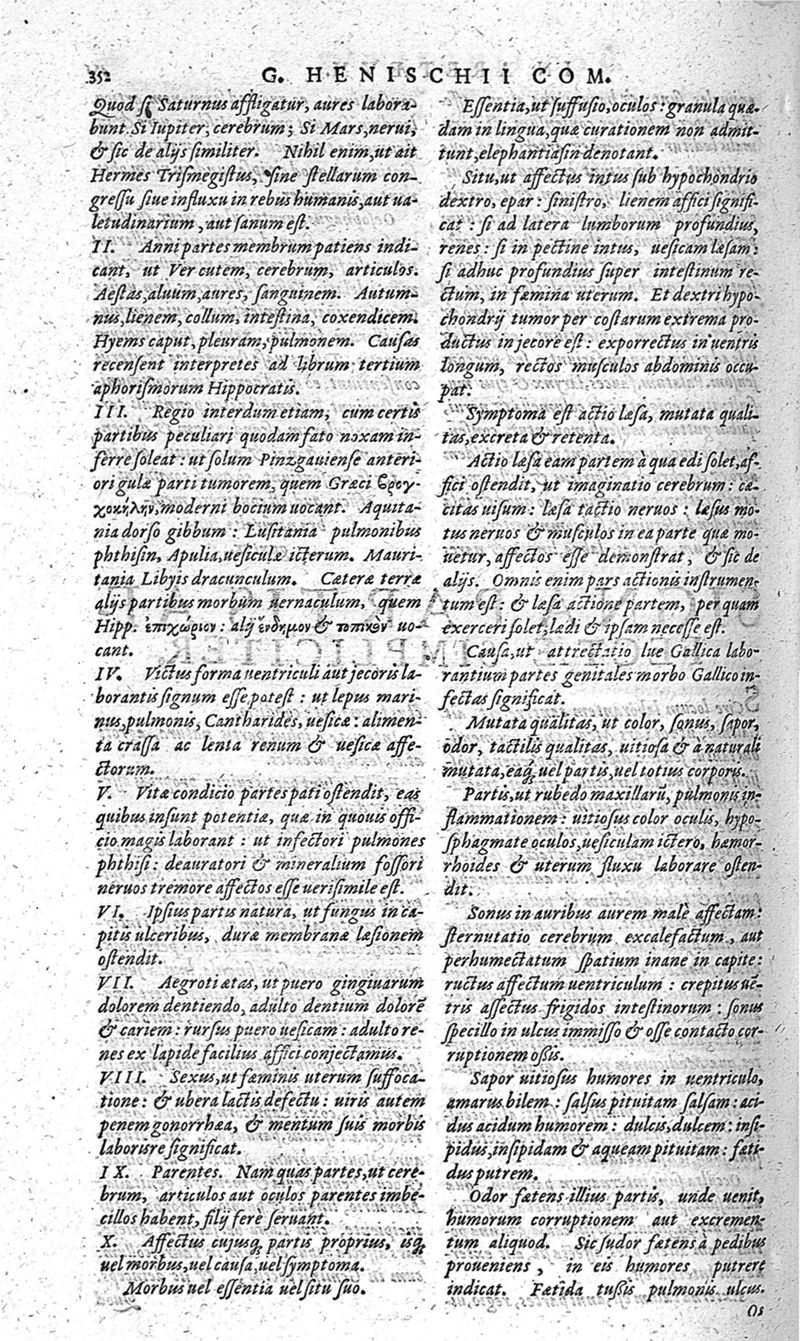 352
G. HENISCHII COM.
Quod si Saturnus affligatur, aures labora-
bunt. Si Iupiter, cerebrum; Si Mars, nerui;
& sic de alijs similiter. Nihil enim, ut ait
Hermes Trismegistus, sine stellarum con-
gressu siue influxu in rebus humanis, aut ua-
letudinarium, aut sanum est.
II. Anni partes membrum patiens indi-
cant, ut Ver cutem, cerebrum, articulos.
Aestas, aluum, aures, sanguinem. Autum-
nus, lienem, collum, intestina, coxendicem.
Hyems caput, pleuram, pulmonem. Causas
recensent interpretes ad librum tertium
aphorismorum Hippocratis.
III. Regio interdum etiam, cum certis
partibus peculiari quodam fato noxam in-
ferre soleat: ut solum Pinzgauiense anteri-
ori gulæ parti tumorem, quem Græci βρογ-
χοκήλην, moderni bocium uocant. Aquita-
nia dorso gibbum: Lusitania pulmonibus
phthisin, Apulia, uesiculæ icterum. Mauri-
tania Libyis dracunculum. Cæteræ terræ
alijs partibus morbum uernaculum, quem
Hipp. ἐπιχώριον: alij ἔνδημον & τοπικὸν uo-
cant.
IV. Victus forma uentriculi aut jecoris la-
borantis signum esse potest: ut lepus mari-
nus, pulmonis, Cantharides, uesicæ: alimen-
ta crassa ac lenta renum & uesicæ affe-
ctorum.
V. Vitæ condicio partes pati ostendit, eas
quibus insunt potentiæ, quæ in quouis offi-
cio magis laborant: ut infectori pulmones
phthisi: deauratori & mineralium fossori
neruos tremore affectos esse uerisimile est.
VI. Ipsius partis natura, ut fungus in ca-
pitis ulceribus, duræ membranæ læsionem
ostendit.
VII. Aegroti ætas, ut puero gingiuarum
dolorem dentiendo, adulto dentium dolorē
& cariem: rursus puero uesicam: adulto re-
nes ex lapide facilius affici conjectamus.
VIII. Sexus, ut fæminis uterum suffoca-
tione: & ubera lactis defectu: uiris autem
penem gonorrhæa, & mentum suis morbis
laborare significat.
IX. Parentes. Nam quas partes, ut cere-
brum, articulos aut oculos parentes imbe-
cillos habent, filij ferè seruant.
X. Affectus cujusq; partis proprius, isq;
uel morbus, uel causa, uel symptoma.
Morbus uel essentia uel situ suo.
Essentia, ut suffusio, oculos: granula quæ-
dam in lingua, quæ curationem non admit-
tunt, elephantiasin denotant.
Situ, ut affectus intus sub hypochondrio
dextro, epar: sinistro, lienem affici signifi-
cat: si ad latera lumborum profundius,
renes: si in pectine intus, uesicam læsam:
si adhuc profundius super intestinum re-
ctum, in fæmina uterum. Et dextri hypo-
chondrij tumor per costarum extrema pro-
ductus in jecore est: exporrectus in uentris
longum, rectos musculos abdominis occu-
pat.
Symptoma est actio læsa, mutata quali-
tas, excreta & retenta.
Actio læsa eam partem à qua edi solet, af-
fici ostendit, ut imaginatio cerebrum: cæ-
citas uisum: læsa tactio neruos: læsus mo-
tus neruos & musculos in ea parte quæ mo-
uetur, affectos esse demonstrat, & sic de
alijs. Omnis enim pars actionis instrumen-
tum est: & læsa actione partem, per quam
exerceri solet, lædi & ipsam necesse est.
Causa, ut attrectatio lue Gallica labo-
rantium partes genitales morbo Gallico in-
fectas significat.
Mutata qualitas, ut color, sonus, sapor,
odor, tactilis qualitas, uitiosa & à naturali
mutata, eaq; uel partis, uel totius corporis.
Partis, ut rubedo maxillarū, pulmonis in-
flammationem: uitiosus color oculis, hypo-
sphagmate oculos, uesiculam ictero, hæmor-
rhoides & uterum fluxu laborare osten-
dit.
Sonus in auribus aurem malè affectam:
sternutatio cerebrum excalefactum, aut
perhumectatum spatium inane in capite:
ructus affectum uentriculum: crepitus uē-
tris affectus frigidos intestinorum: sonus
specillo in ulcus immisso & osse contacto, cor-
ruptionem ossis.
Sapor uitiosus humores in uentriculo,
amarus bilem: salsus pituitam salsam: aci-
dus acidum humorem: dulcis, dulcem: insi-
pidus, insipidam & aqueam pituitam: fæti-
dus putrem.
Odor fætens illius partis, unde uenit,
humorum corruptionem aut excremen-
tum aliquod. Sic sudor fætens à pedibus
proueniens, in eis humores putrere
indicat. Fætida tussis pulmonis ulcus.
Os